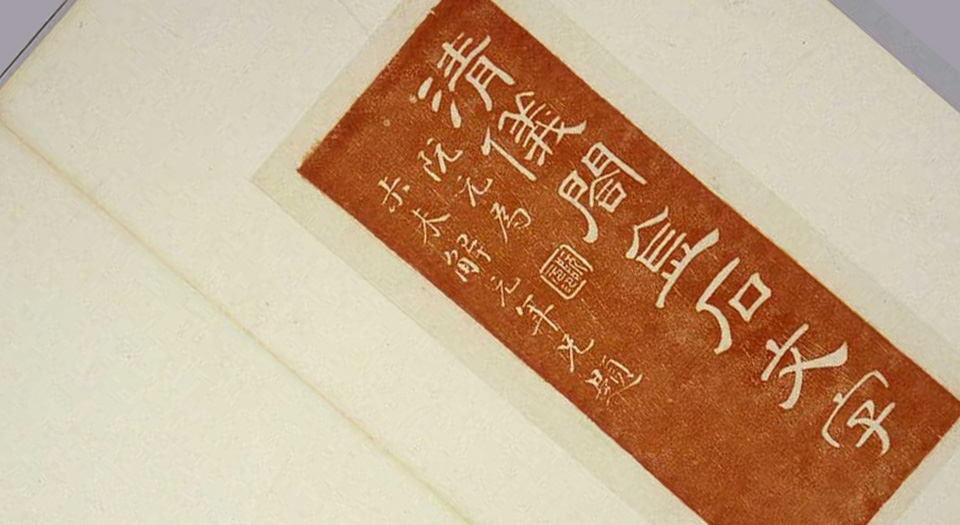 清儀閣金石文字
阮元為
尗未解元年兄題